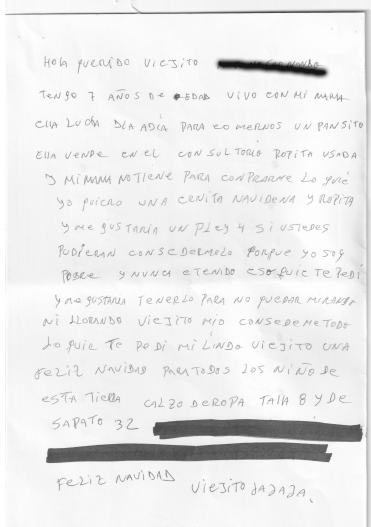 Hola querido viejito
Tengo 7 años de edad vivo con mi mama
ella lucha dia adia para comernos un pansito
ella vende en el consultorio ropita usada
y mi mama no tiene para conprarme lo quié
yo quiero una cenita navidena y ropita
y me gustaria un pley 4 si ustedes
pudieran consedermelo porque yo soy
pobre y nunca e tenido eso quie te pedi
y me gustaria tenerlo para no quedar mirando
ni llorando viejito mio consedeme todo
lo quie te pedi mi lindo viejito una
feliz navidad para todos los niño de
esta tierra calzo de ropa talla 8 y de
sapato 32
feliz navidad
viejito jajaja.